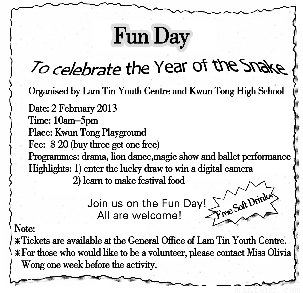 Fun Day
To celebrate the Year of the Snake
Organised by Lam Tin Youth Centre and Kwun Tong High School
Date: 2 February 2013
Time: 10am–5pm
Place: Kwun Tong Playground
Fee: $ 20 (buy three get one free)
Programmes: drama, lion dance,magic show and ballet performance
Highlights: 1) enter the lucky draw to win a digital camera
2) learn to make festival food
Join us on the Fun Day!
All are welcome!
Free Soft Drinks
Note:
*Tickets are available at the General Office of Lam Tin Youth Centre.
*For those who would like to be a volunteer, please contact Miss Olivia
Wong one week before the activity.